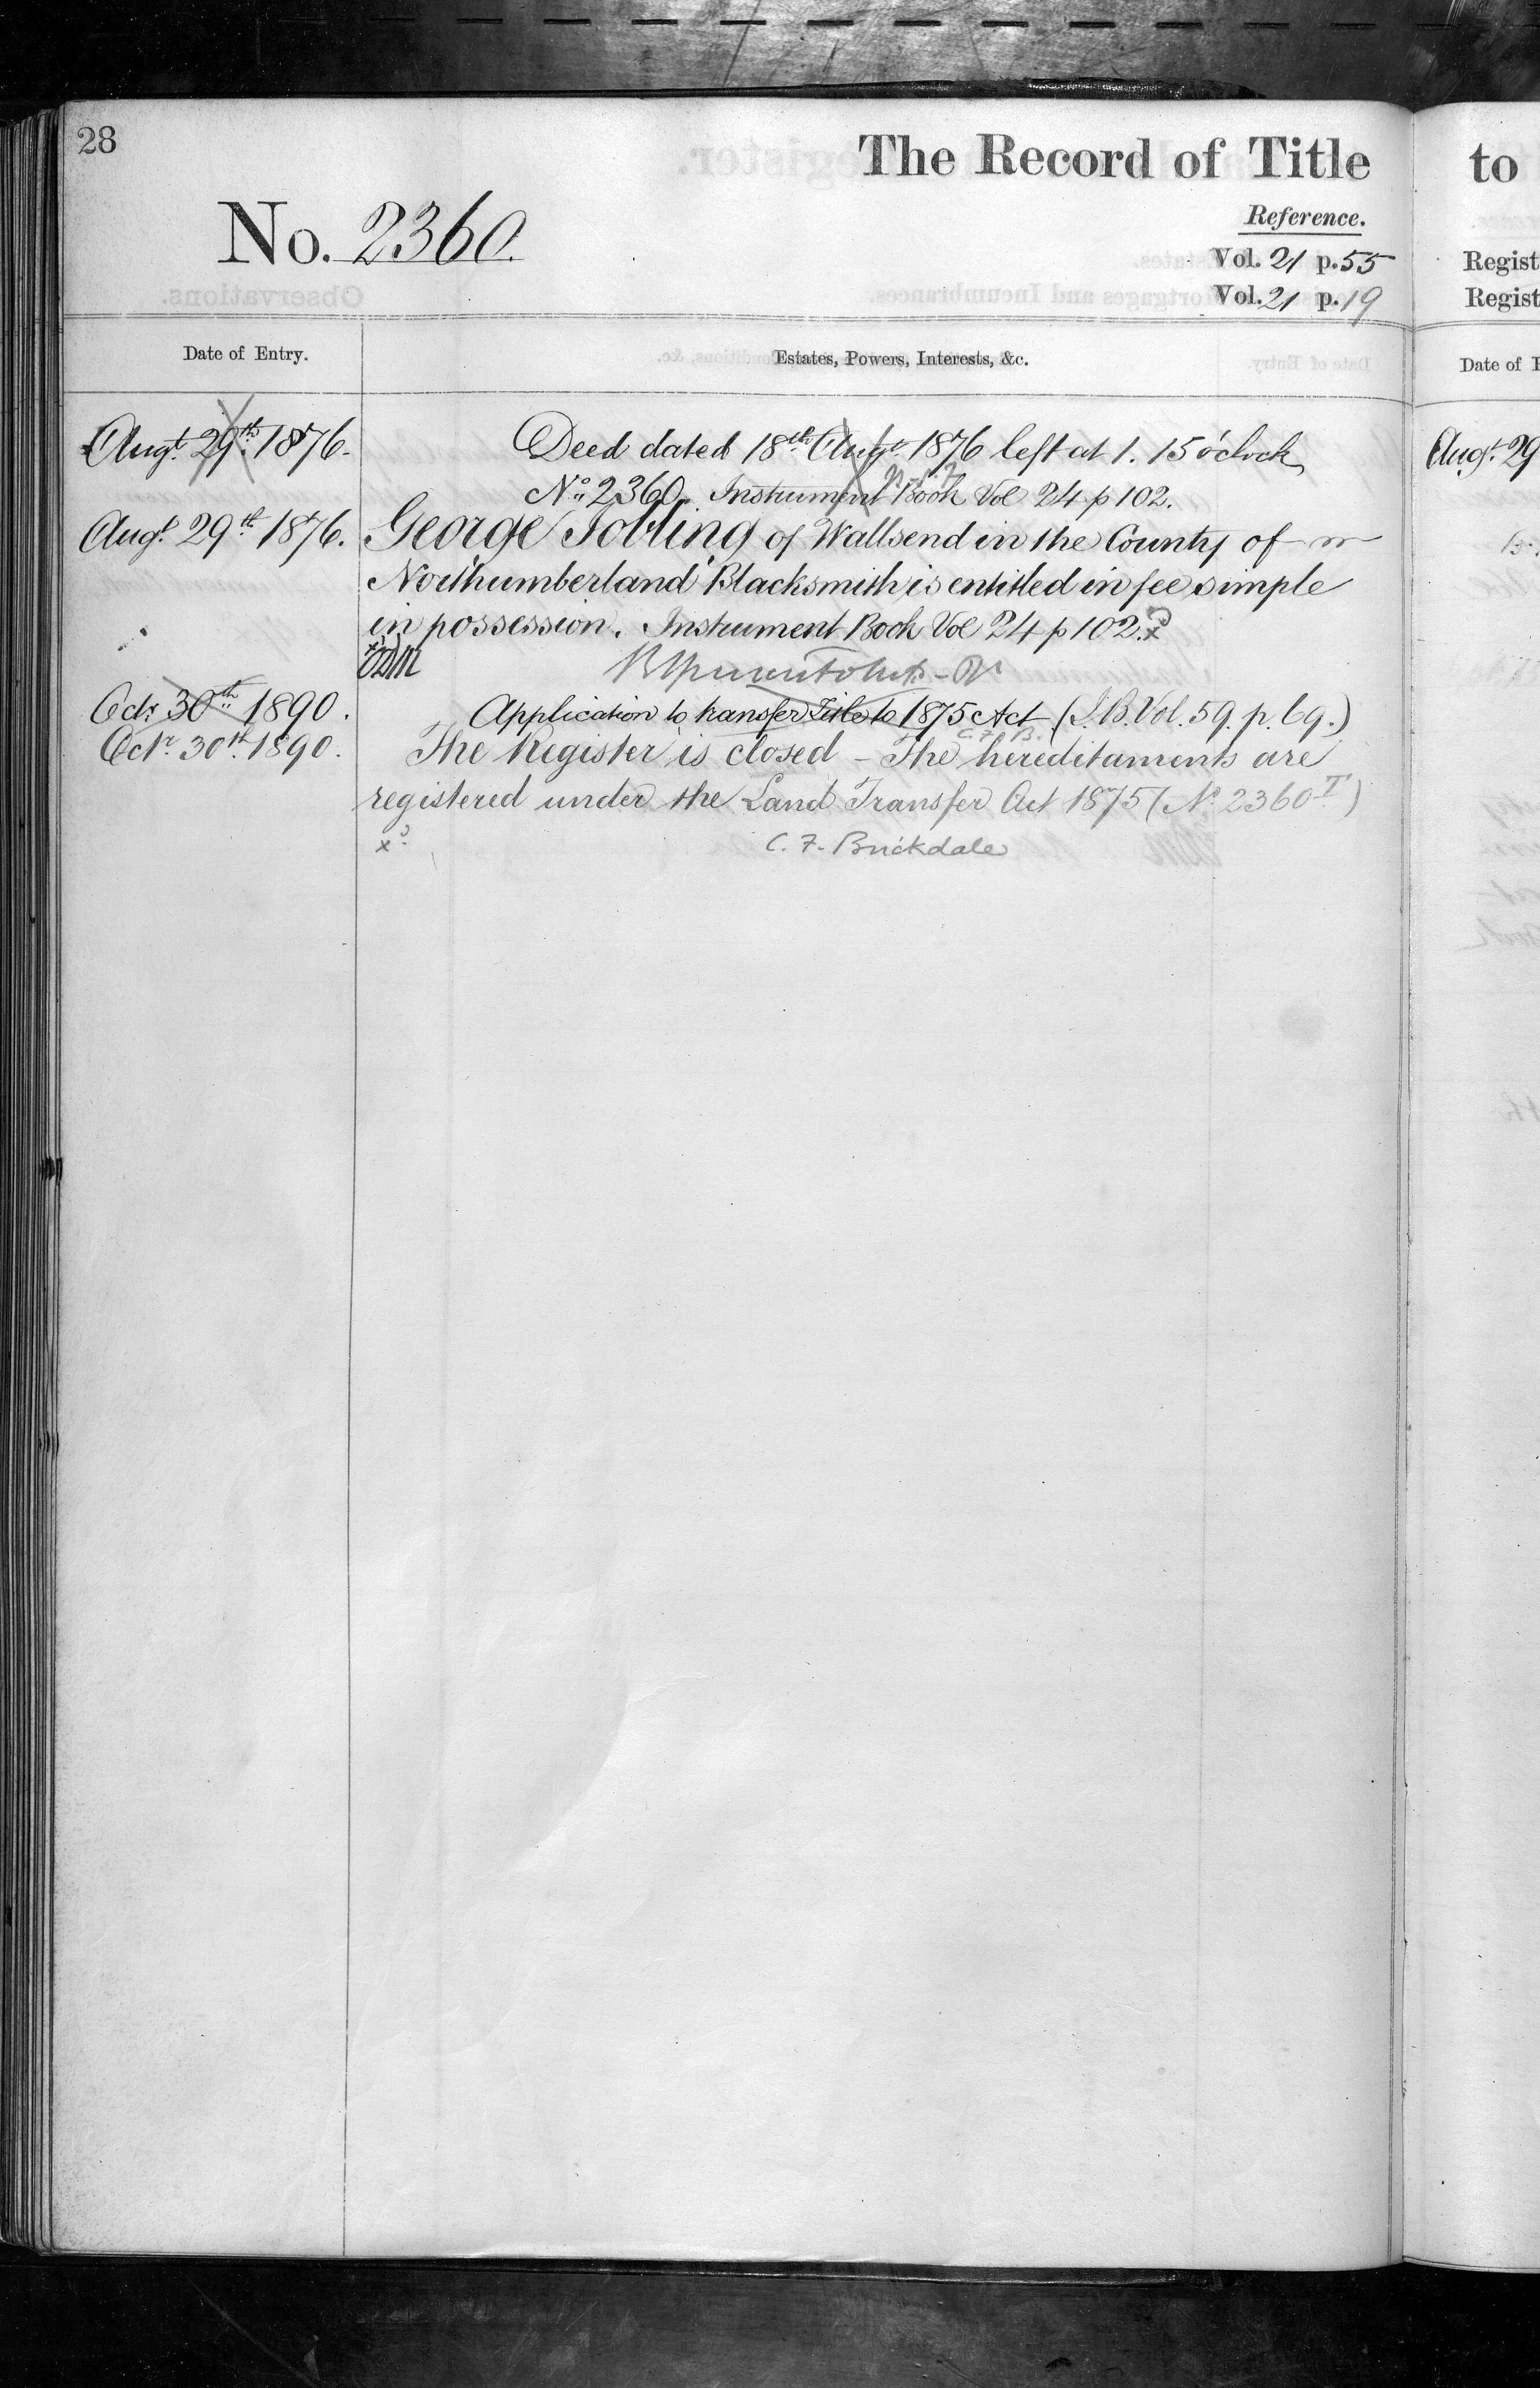 28
The Record of Title
to
Reference.
No. 2360.
Vol. 21 p. 55
Regist
Vol. 21 p. 19
Regist
Date of Entry.
Estates, Powers, Interests, &c.
Date of E
Augt. 29th. 1876.
Deed dated 18th. Augt. 1876 left at 1.15 o'clock
Augt. 29
No. 2360. Instrument Book Vol 24 p 102.
Augt. 29th. 1876.
George Jobling of Wallsend in the County of
Northumberland Blacksmith is entitled in fee simple
in possession. Instrument Book Vol 24 p 102.
Octr. 30th. 1890.
Application to transfer Title to 1875 Act (I.B. Vol. 59. p. 69.)
C. F. B.
Octr. 30th. 1890.
The Register is closed – The hereditaments are
registered under the Land Transfer Act 1875 (No. 2360 T)
C. F. Brickdale